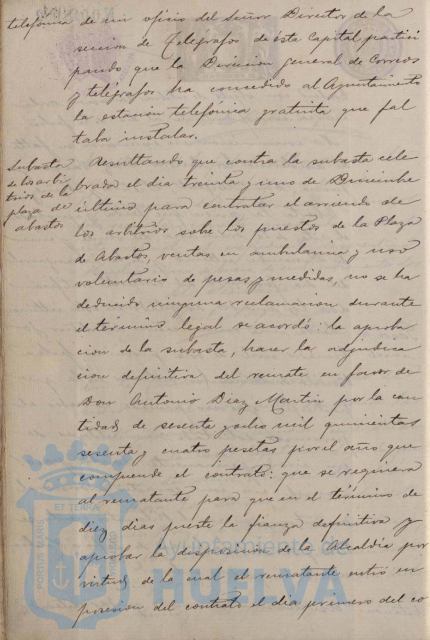 telefónica de un oficio del señor Director de la
sección de Telégrafos de este Capital partici
pando que la Dirección general de Correos
y telégrafos ha concedido al Ayuntamiento
la estación telefónica gratuita que fal
taba instalar.
Subasta
de los arbi
trios de la
plaza de
abastos
Resultando que contra la subasta cele
brada el día treinta y uno de Diciembre
último para contratar el arriendo de
los arbitrios sobre los puestos de la Plaza
de Abastos, ventas en ambulancia y uso
voluntario de pesas y medidas, no se ha
deducido ninguna reclamación durante
el término legal se acordó: la aproba
cion de la subasta, hacer la adjudica
cion definitiva del remate en favor de
Don Antonio Diaz Martin por la can
tidad de sesenta y ocho mil quinientas
sesenta y cuatro pesetas por el año que
comprende el contrato: que se requiera
al rematante para que en el término de
diez dias preste la fianza definitiva y
aprobar la disposición de la Alcaldía por
virtud de la cual el rematante entró en
posesión del contrato el día primero del co
PORTUS MARIS ET TERRÆ CUSTODIA
Ayuntamiento de
HUELVA